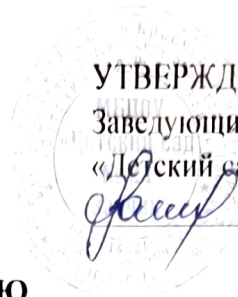 УТВЕРЖД
Заведующи
«Детский с
Ю